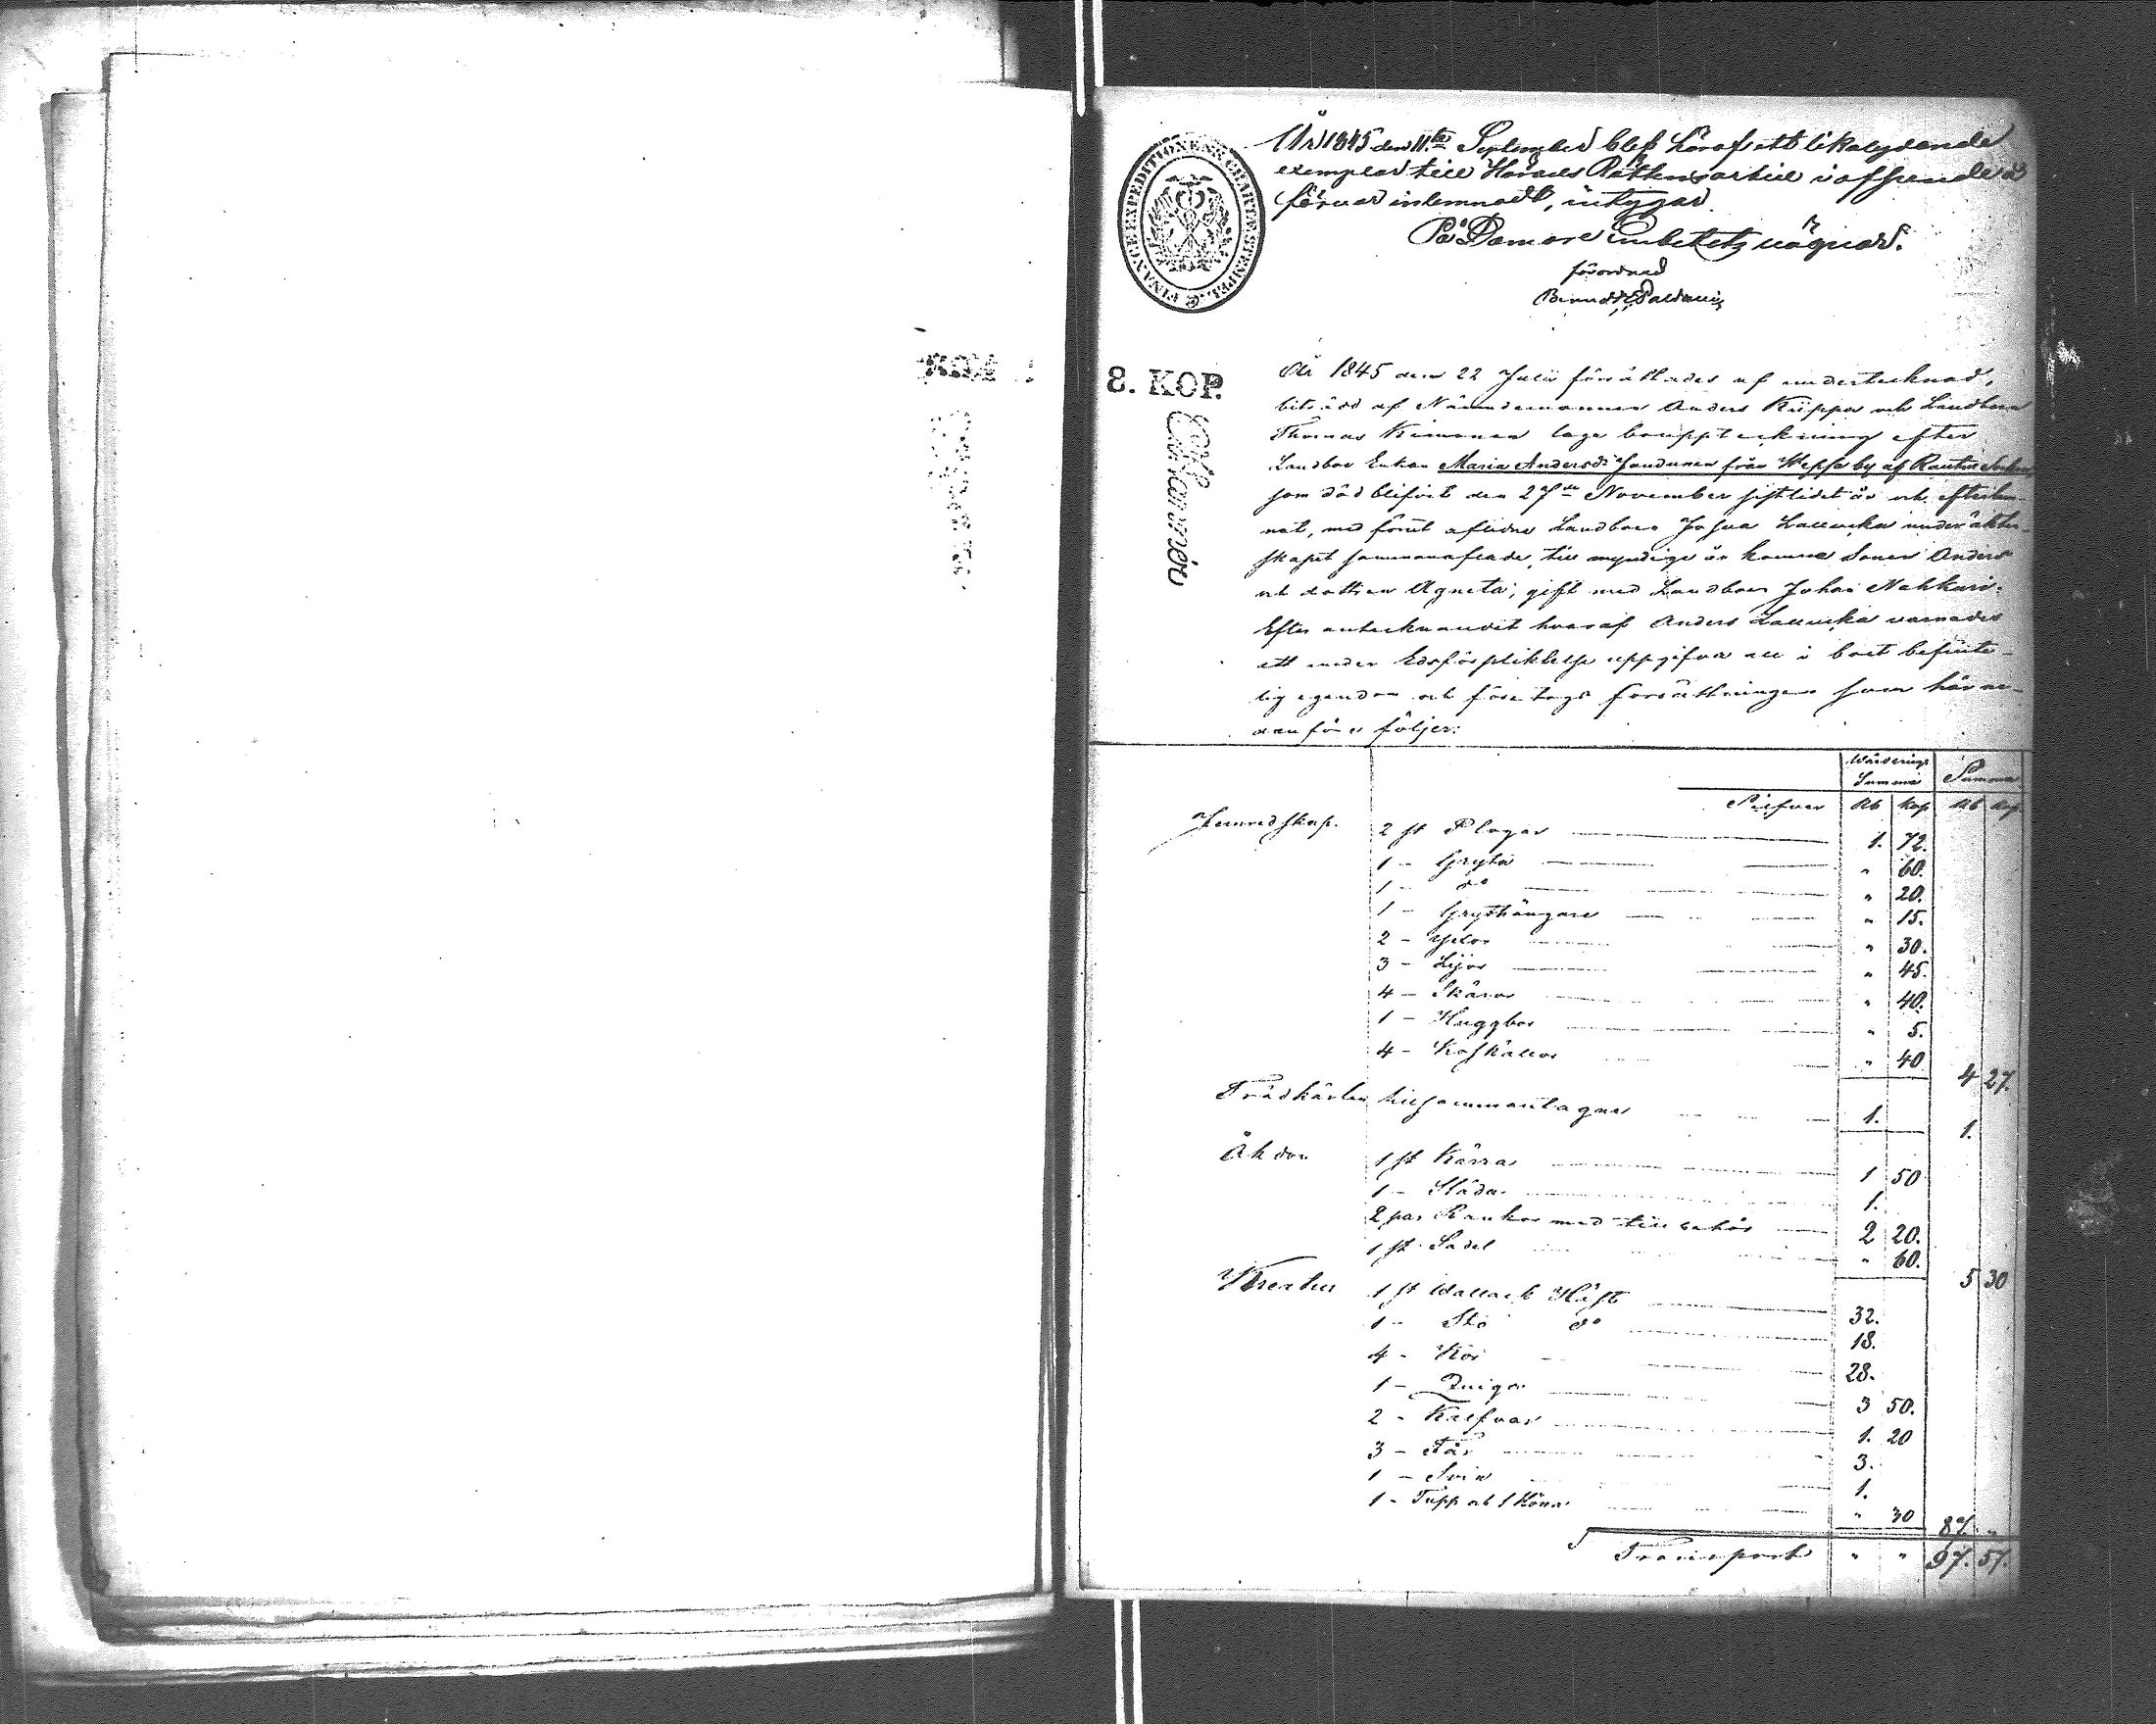 År 1845 den 11te September blef häraf ett likalydande
exemplar till Härads Rättens arkiv i afseende å
förvar inlemnadt, intygar
På Domare Embetets vägnar.
förordnad
FINANCE EXPEDITIONENS CHARTÆ STEMPEL
8. KOP.
År 1845 den 22 Julii förrättades af undertecknad,
biträdd af Nämndemannen Anders Kiippa och Landboen
Thomas Kimanen laga bouppteckning efter
Landbo Enkan Maria Andersdr Jandunen från Weppsa by af Rautus Sochn
som död blifvit den 27de November sistlidet år och efterlem-
nat, med förut aflidne Landboen Josua Lallucka under äkten-
skapet sammanaflade, till myndige år komne Sonen Anders
och dottren Agneta, gift med Landboen Johan Nahkuri.
Efter antecknandet hvaraf Anders Lallucka varnades
att under Edsförpliktelse uppgifva all i boet befinte-
lig egendom och företogs förrättningen som härne-
danföre följer:
Wärderings Summa Summa
Silfver Rb Kop Rb Kop
Jernredskap. 2 st Plogar 1. 72.
1 - Gryta " 60.
1 - do " 20.
1 - Grythängare " 15.
2 - Yxor " 30.
3 - Lijor " 45.
4 - Skäror " 40.
1 - Huggbor " 5.
4 - Koskällor " 40
4 27.
Trädkärlen tillsammantagne 1.
1.
Åkdon 1 st Kärra 1 50
1 - Släda 1.
2 par Rankor med tillbehör 2 20.
1 st Sadel " 60.
5 30
Kreatur 1 st Wallack Häst 32.
1 - Sto do 18.
4 - Kor 28.
1 - Quiga 3 50.
2 - Kalfvar 1. 20
3 - Får 3.
1 - Svin 1.
1 - Tupp och 1 Höna " 30
87. "
Transport " " 97. 57.